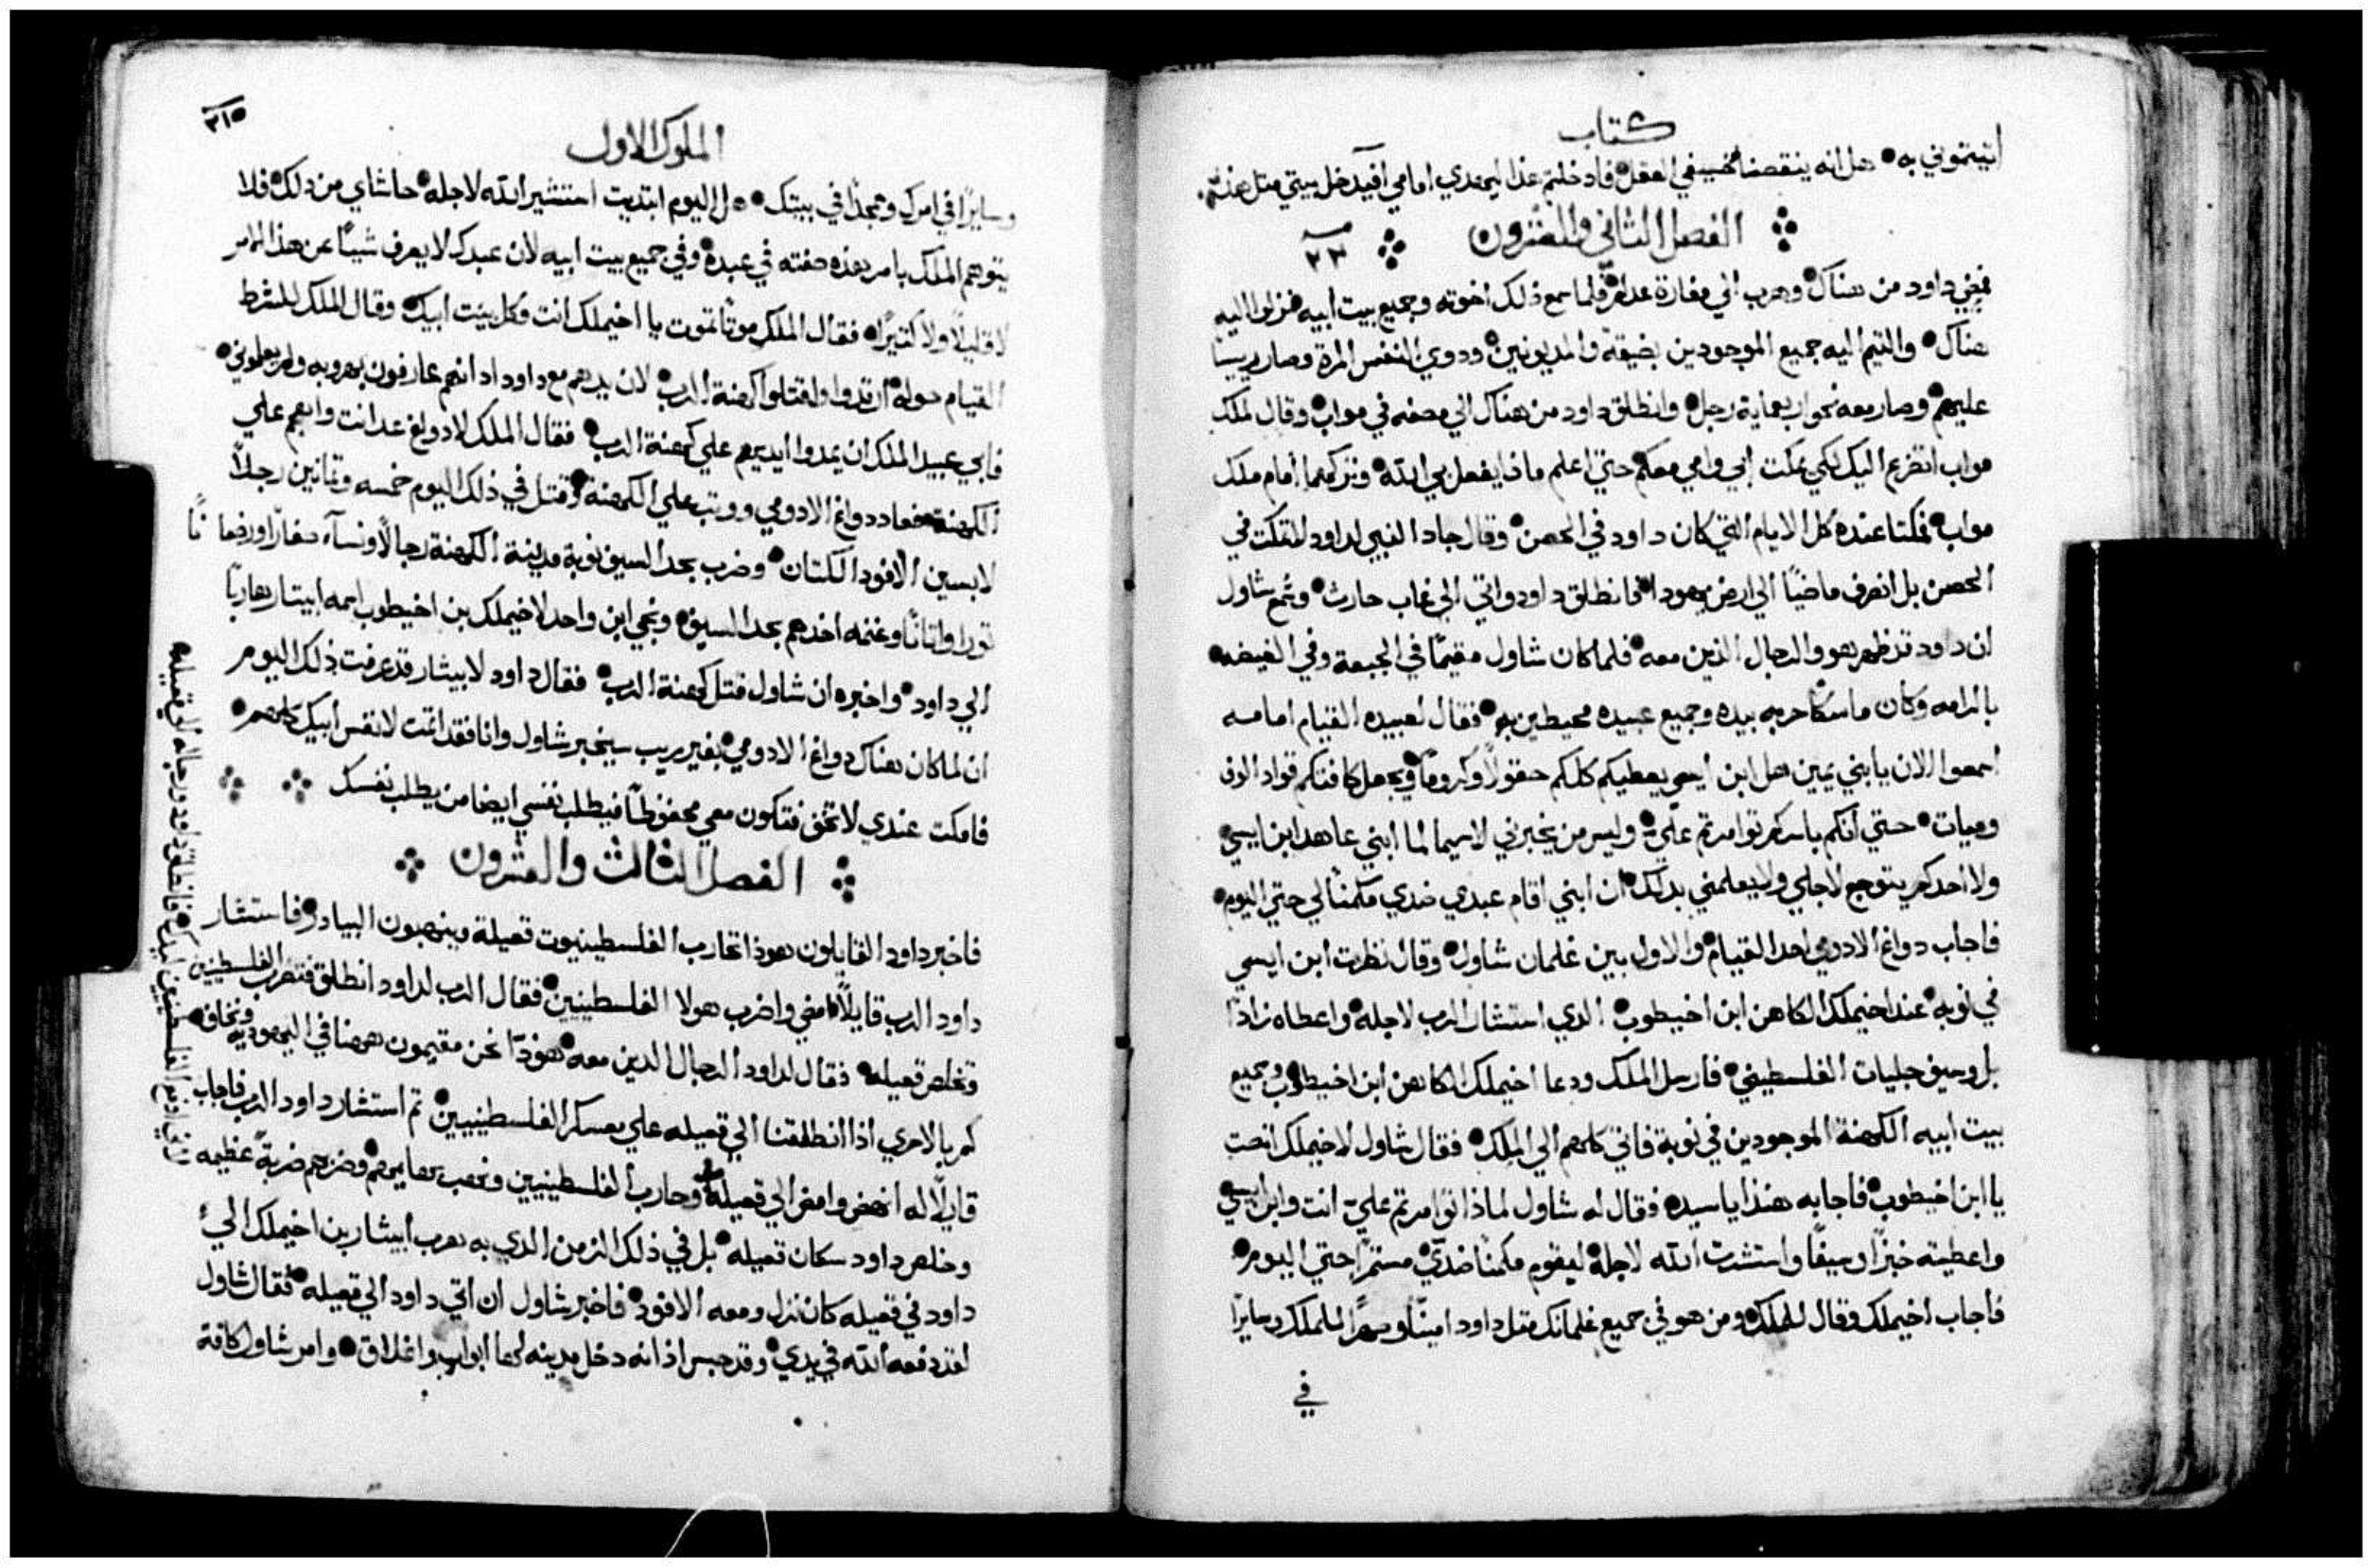 كتاب
اتيتموني به هل انه ينقصنا مخسيفي العقل فادخلتم هذا ليهتدي امامي افيدخل بيتي مثل هذا
الفصل الثاني والعشرون
٢٣
فمضي داود من هناك وهرب الي مغارة عدلام فلما سمع ذلك اخوته وجميع بيت ابيه فنزلوا اليه
هناك والتيم اليه جميع الموجودين بضيقة والمديونين ودوي النفس المرة وصار رييسا
عليهم وصار معه نحو اربعماية رجل وانطلق داود من هناك الي مصفه في مواب وقال لملك
مواب اتضرع اليك لكي يمكت ابي وامي معكم حتي اعلم ماذا يفعل بي الله وتركهما امام ملك
مواب فمكتا عنده كل الايام التي كان داود في الحصن وقال جاد النبي لداود لا تمكت في
الحصن بل انصرف ماضيًا الي ارض يهودا فانطلق داود واتي الي غاب حارث وسمع شاول
ان داود قد ظهر هو والرجال الذين معه فلما كان شاول مقيمًا في الجبعة وفي الغيضه
بالرامه وكان ماسكًا حربه بيده وجميع عبيده محيطين به فقال لعبيده القيام امامه
اسمعوا الان يا بني يمين هل ابن ايسي يعطيكم كلكم حقولاً وكرومًا ويجعل كافتكم قواد الوف
وميات حتي انكم باسركم توامرتم علي وليس من يخبرني لاسيما لما ابني عاهد ابن ايسي
ولا احدكم يتوجع لاجلي ولا يعلمني بدلك ان ابني اقام عبدي ضدي مكمنًا لي حتي اليوم
فاجاب دواغ الادومي احد القيام والاول بين غلمان شاول وقال نظرت ابن ايسي
في نوبه عند اخيملك الكاهن ابن اخيطوب الدي استشار الرب لاجله واعطاه زادًا
بل وسيف جليات الفلسطيني فارسل الملك ودعا اخيملك الكاهن ابن اخيطوب وجميع
بيت ابيه الكهنة الموجودين في نوبة فاتي كلهم الي الملك فقال شاول لاخيملك انصت
يا ابن اخيطوب فاجابه هنذا يا سيدي فقال له شاول لماذا توامرتم علي انت وابن ايسي
واعطيته خبزًا وسيفًا واستشرت الله لاجله ليقوم مكمنًا ضدي مستمرًا حتي اليوم
فاجاب اخيملك وقال للملك ومن هو في جميع غلمانك مثل داود امينًا وصهرًا للملك وسايرًا
في
٣١٥
الملوك الاول
وسايرًا في امرك وممجدًا في بيتك هل اليوم ابتديت استشير الله لاجله حاشاي من دلك فلا
يتوهم الملك بامر هذه صفته في عبده وفي جميع بيت ابيه لان عبدك لا يعرف شيًا عن هذا الامر
لا قليلاً ولا كثيرًا فقال الملك موتًا تموت يا اخيملك انت وكل بيت ابيك وقال الملك للشرط
القيام حوله ارتدوا واقتلوا كهنة الرب لان يدهم مع داود اد انهم عارفون بهروبه ولم يعلموني
فابي عبيد الملك ان يمدوا ايديهم علي كهنة الرب فقال الملك لادواغ عد انت واهجم علي
الكهنة فعاد دواغ الادومي ووتب علي الكهنة وقتل في ذلك اليوم خمسه وتمانين رجلاً
لابسين الافود الكتان وضرب بحد السيف نوبة مدينة الكهنة رجالاً ونسآء صغارًا ورضعانًا
تورا واتانًا وغنمه اخدهم بحد السيف ونجي ابن واحد لاخيملك بن اخيطوب اسمه ابيتار هاربًا
الي داود واخبره ان شاول قتل كهنة الرب فقال داود لابيثار قد عرفت ذلك اليوم
ان لما كان هناك دواغ الادومي بغير ريب سيخبر شاول وانا فقد اتمت لانفس ابيك كلهم
فامكت عندي لا تخف فتكون معي محفوظًا فيطلب نفسي ايضا من يطلب نفسك
الفصل الثالث والعشرون
فاخبر داود القايلون هوذا تحارب الفلسطينيون قعيلة وينهبون البيادر فاستشار
داود الرب قايلاً امضي واضرب هولا الفلسطينيين فقال الرب لداود انطلق فتضرب الفلسطينين
وتخلص قعيله فقال لداود الرجال الدين معه هوذا نحن مقيمون ههنا في اليهودية ونخاف
كم بالاحري اذا انطلقنا الي قعيله علي معسكر الفلسطينيين تم استشار داود الرب فاجاب
قايلاً له انهض وامض الي قعيلة وحارب الفلسطينيين ونهب بهايمهم وضربهم ضربة عظيمه
وخلص داود سكان قعيله بل في ذلك الزمن الدي به هرب أبيثار بن اخيملك الي
داود في قعيله كان نزل ومعه الافود فاخبر شاول ان اتي داود الي قعيله فقال شاول
لقد دفعه الله في يدي وقد حبس اذ انه دخل مدينه لها ابواب واغلاق وامر شاول كافة
الفلسطينين ليدك فانطلق داود ورجاله الي قعيله